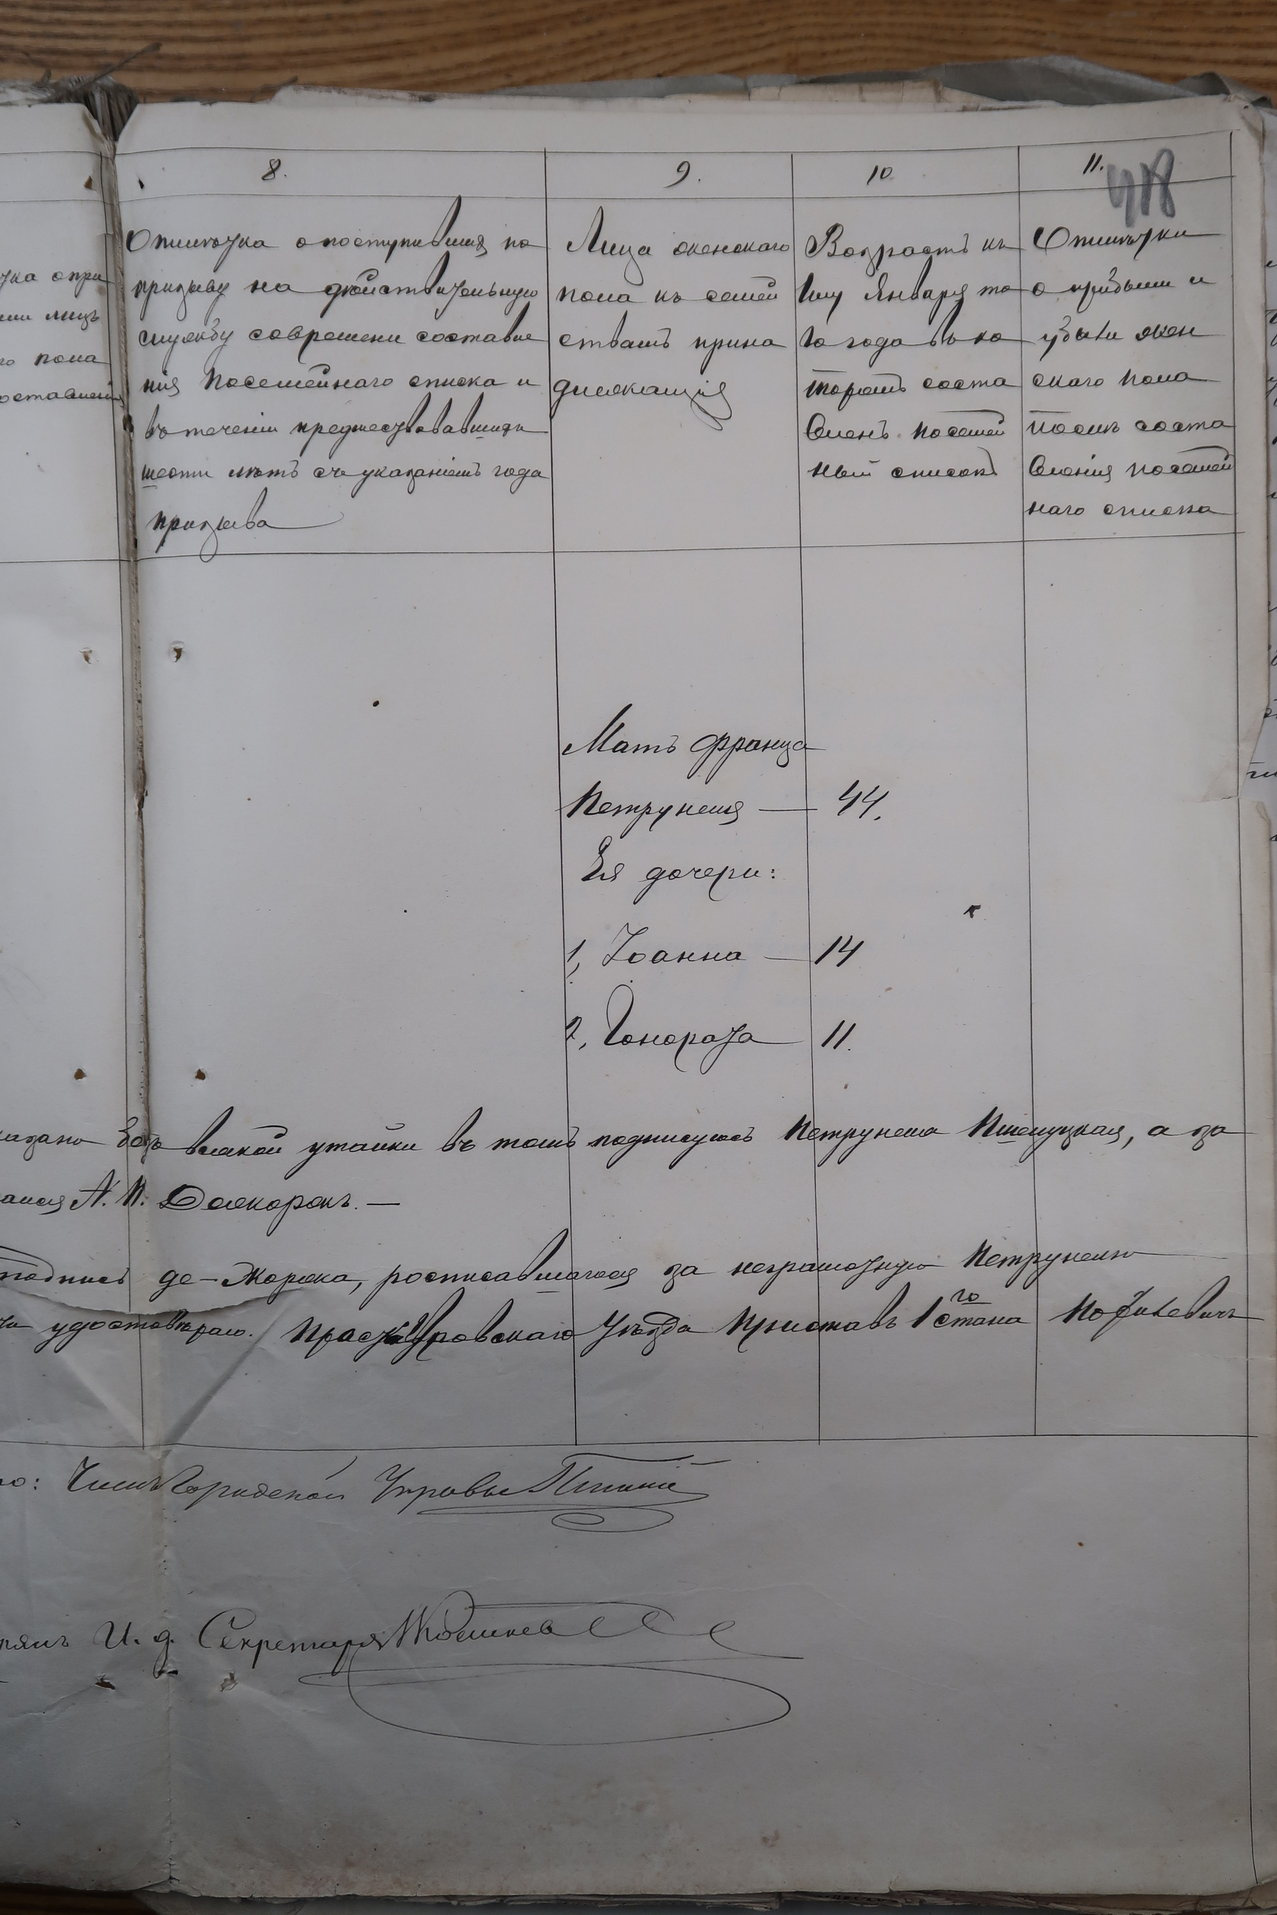 8. 9. 10 11.
418
Отмѣтка о поступившихъ по
призыву на дѣйствительную
службу современи составле
нія посемейнаго списка и
въ теченіи предшествовавшихъ
шести лѣтъ съ указаніемъ года
призыва
Лица женскаго
пола къ семей
ствамъ прина
длежащія
Возрастъ къ
1му Января то
го года въ ко
торомъ соста
вленъ посемей
ный списокъ
Отмѣтки
о прибыли и
убыли жен
скаго пола
послѣ соста
вленія посемей
наго списка
Мать Франца
Петрунеля — 44.
Ея дочери:
1, Іоанна — 14
2, Гонората 11.
казано безъ всякой утайки въ томъ подписуюсь Петрунеля Пшелуцкая, а за
А. П. Дежорокъ. —
подпись де-Жорока, росписавшагося за неграмотную Петрунелю
удостовѣряю. Проскуровскаго Уѣзда Приставъ 1го стана
Членъ Городской Управы
И. д. Секретаря